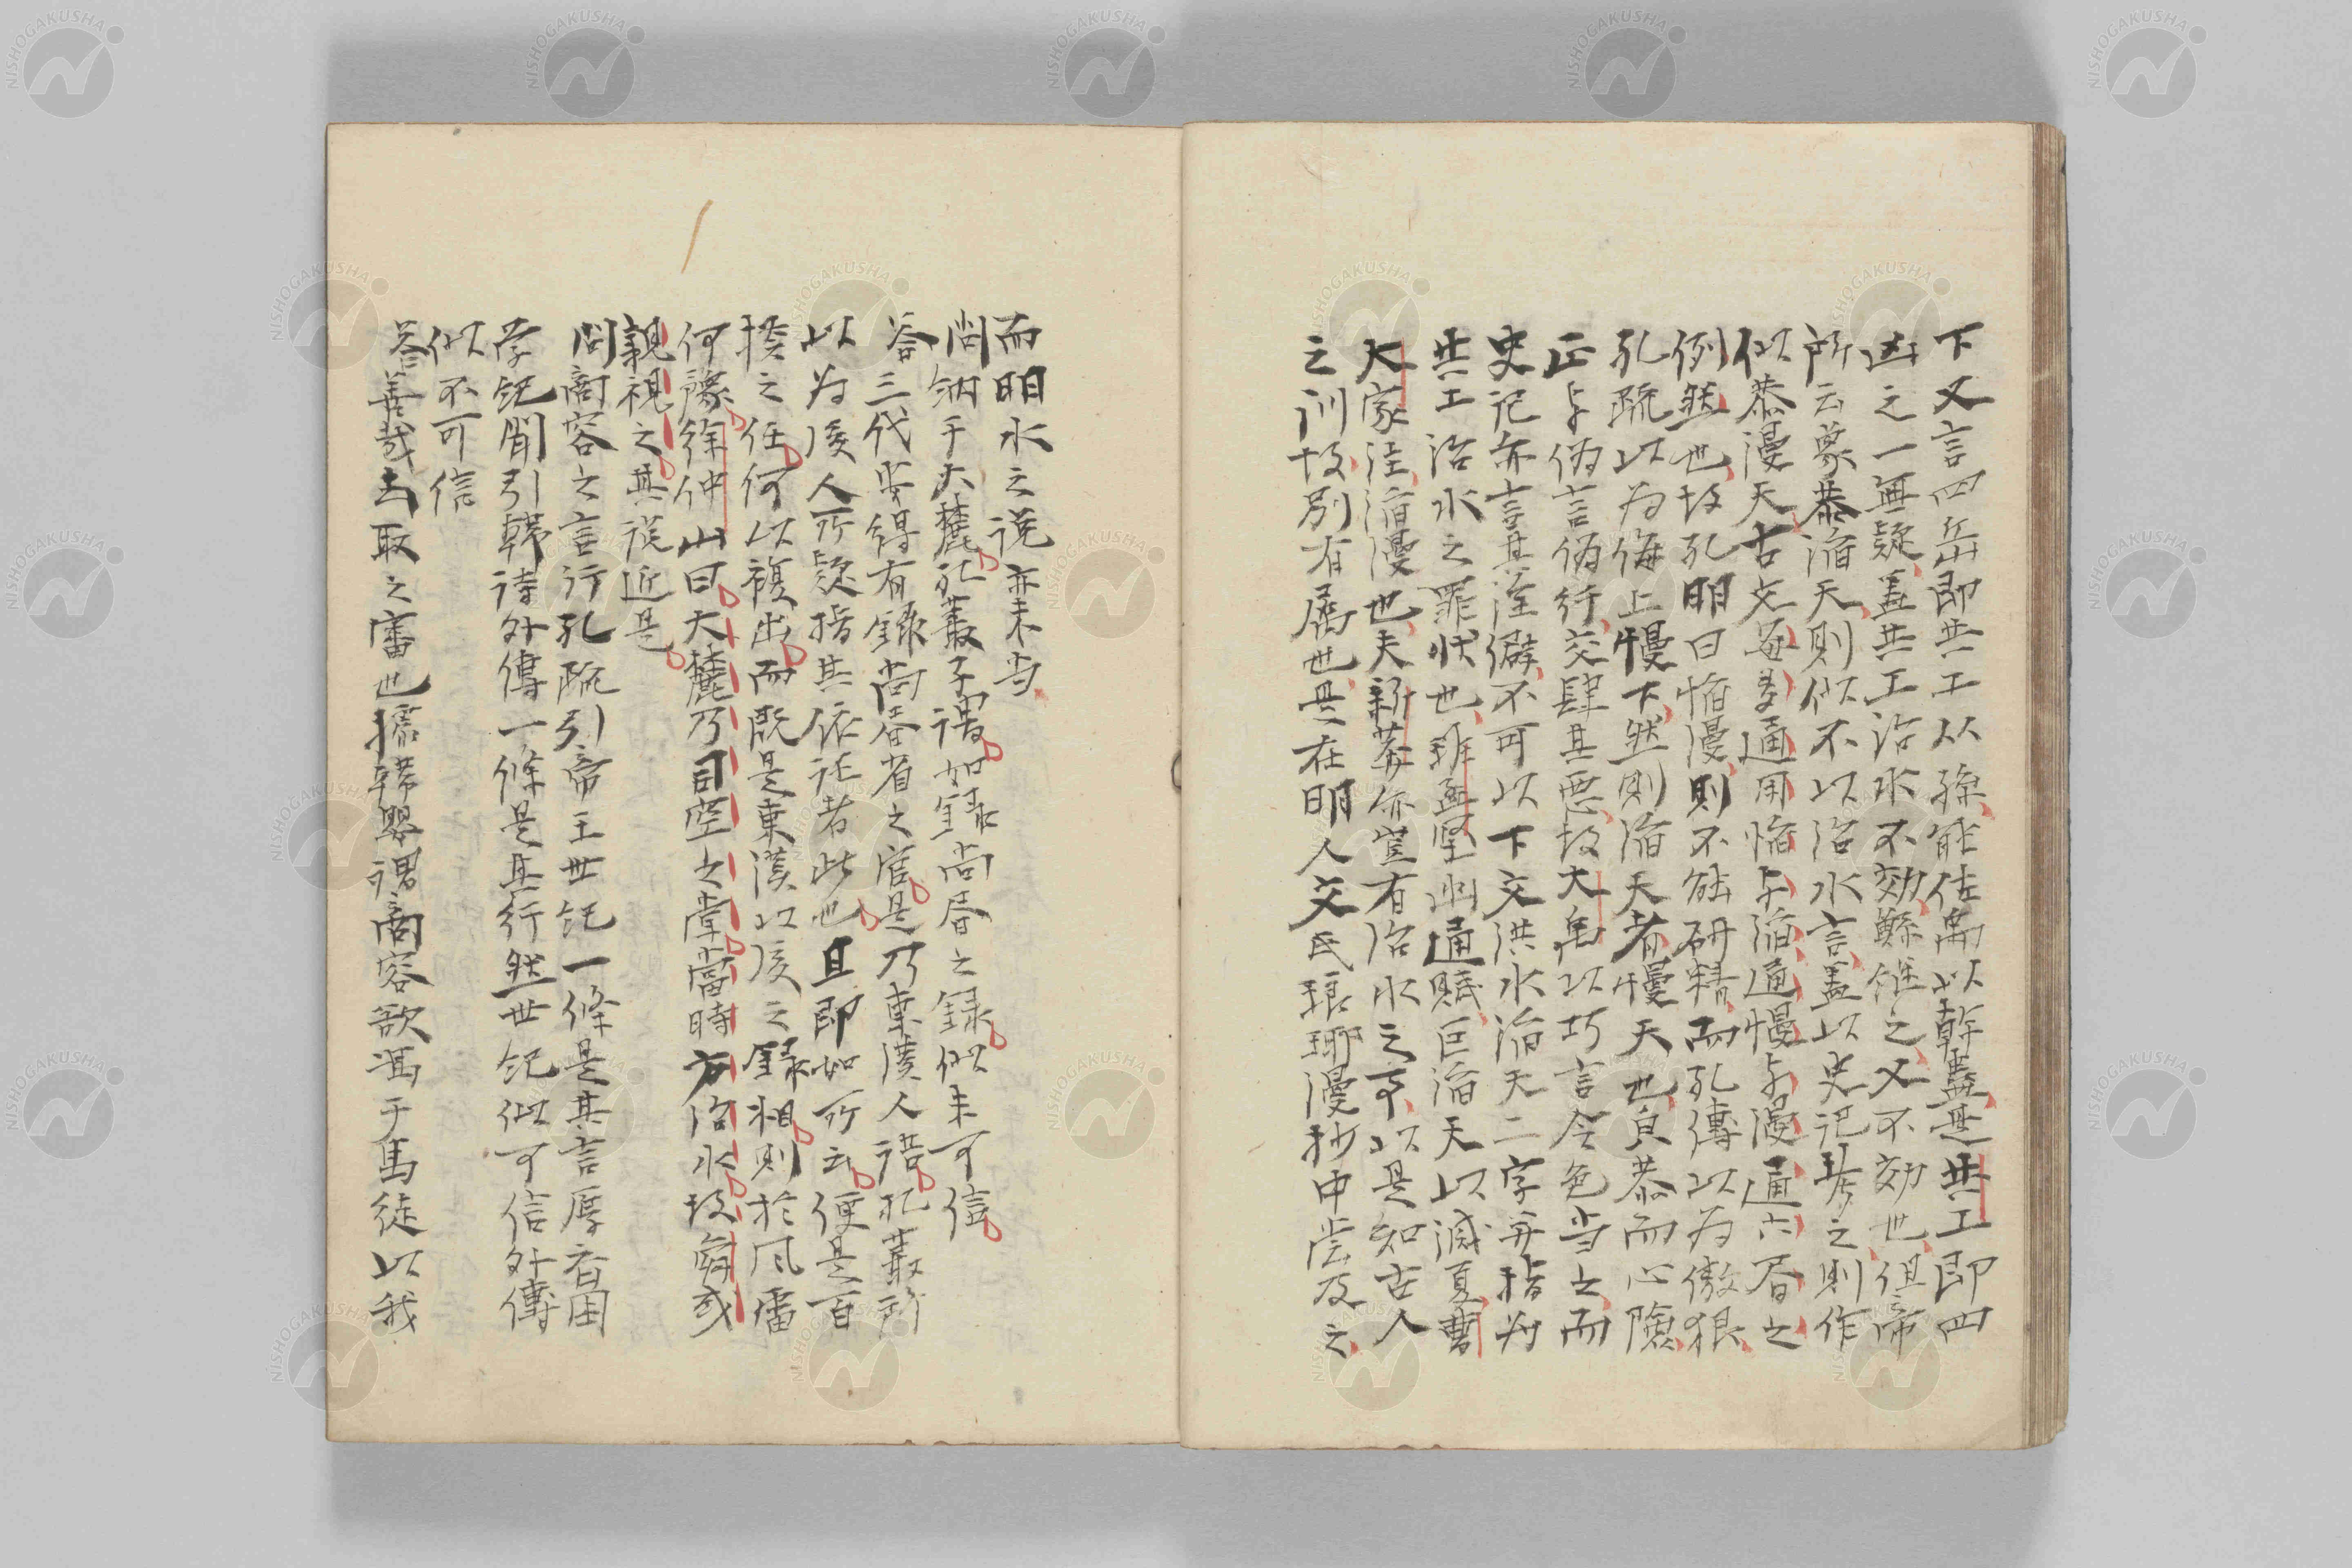 下又言四岳即共工从孫能佐禹以幹蠱是共工即四
凶之一無疑蓋共工治水不効鯀継之又不効也但帝
所云象恭滔天則似不以治水言蓋以史記考之則作
似恭漫天古文每多通用慆与滔通慢与漫通六書之
例然也故孔明曰慆慢則不能研精而孔傳以為傲狠
孔疏以為侮上慢下然則滔天者慢天也貞恭而心險
正与偽言偽行交肆其悪故大禹以巧言令色当之而
史記亦言其淫僻不可以下文洪水滔天二字并指为
共工治水之罪状也班孟堅幽通賦巨滔天以滅夏曹
大家注滔漫也夫新莽亦豈有治水之事以是知古人
之訓故別有屬也是在明人文氏琅琊漫抄中嘗及之
而明水之説亦未当
問納于大麓孔叢子謂如錄尚書之錄似未可信
答三代安得有錄尚書省之官是乃東漢人語孔叢所
以为後人所疑指其依託者此也且即如所云便是百
揆之任何以複出而既是東漢以後之錄相則於風雷
何豫徐仲山曰大麓乃司空之掌當時方治水故舜或
親視之其説近是
問商容之言行孔疏引帝王世紀一條是其言厚斋困
学紀聞引韓詩外傳一條是其行然世紀似可信外傳
似不可信
答善哉去取之審也據韓嬰謂商容欲馮于馬徒以我
NISHOGAKUSHA